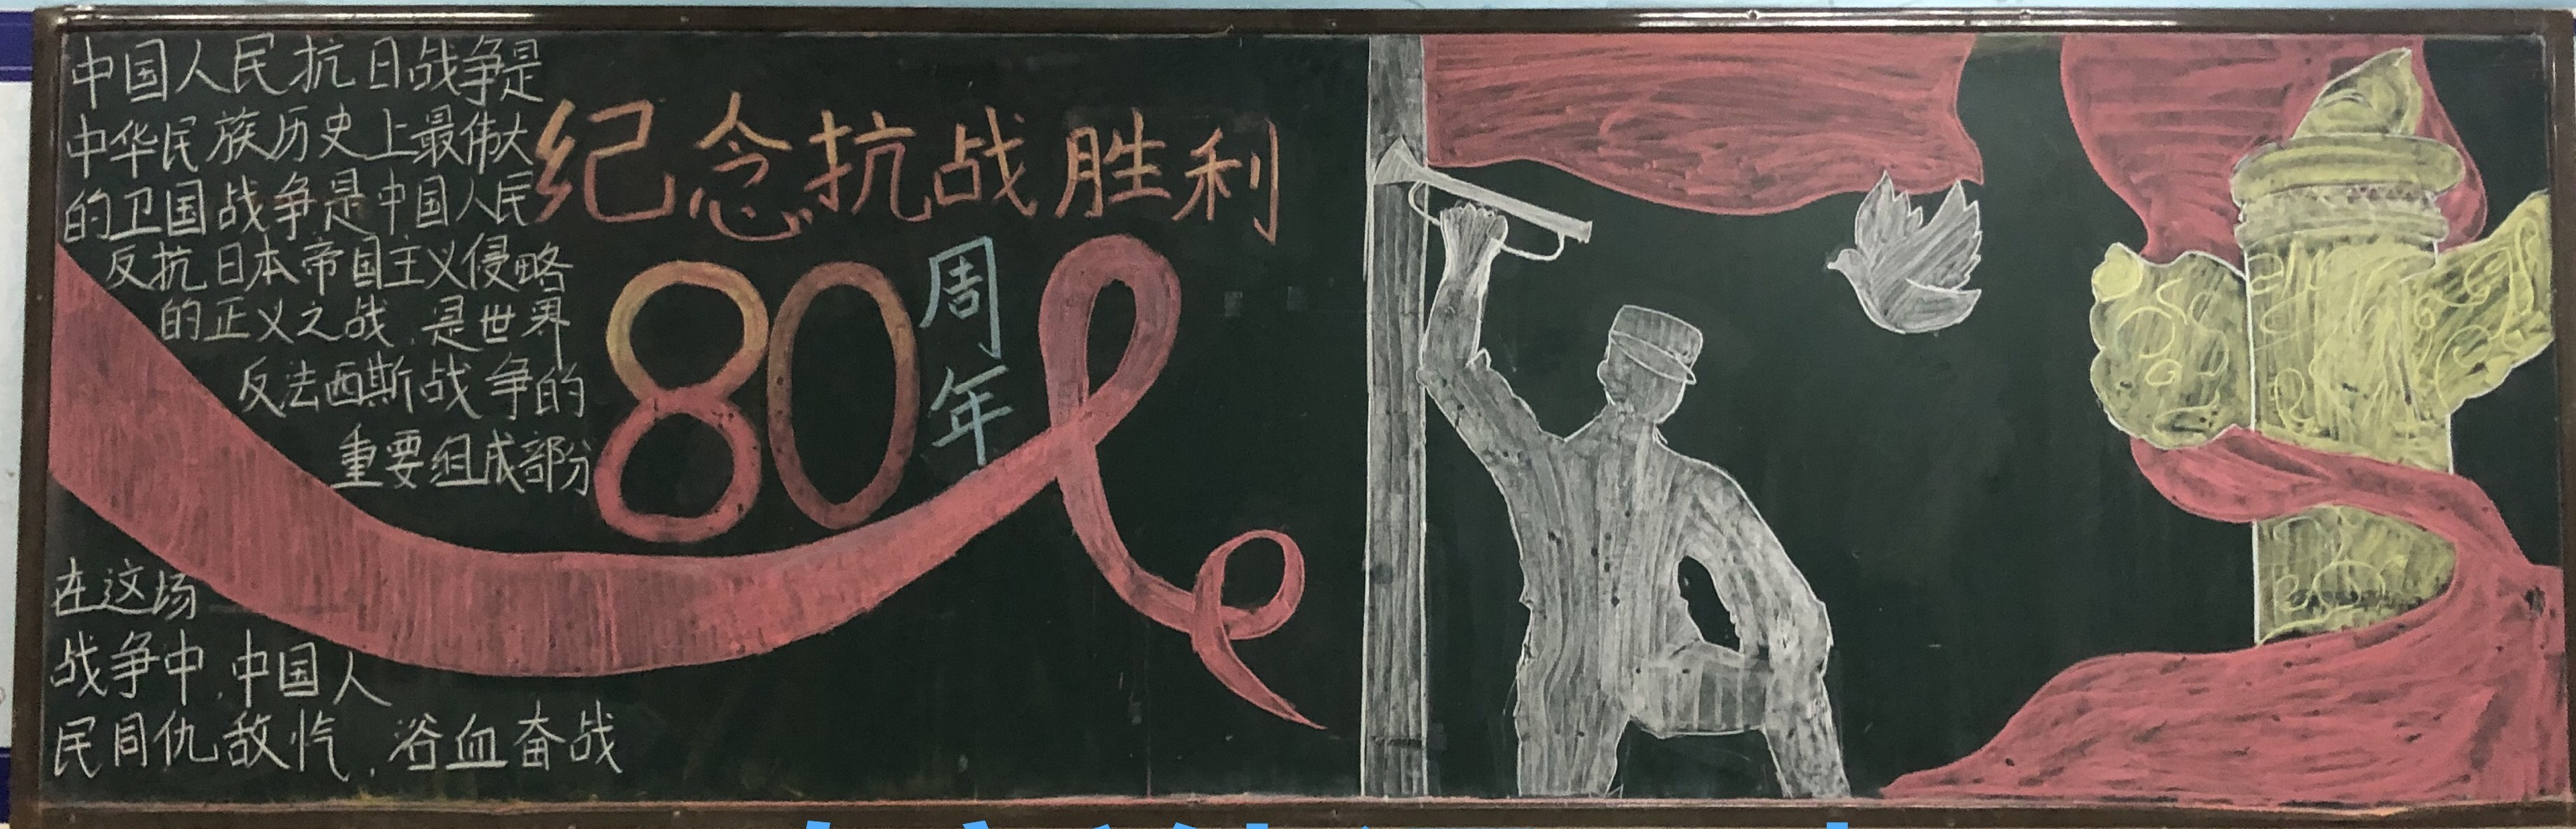 中国人民抗日战争是
中华民族历史上最伟大
的卫国战争是中国人民
反抗日本帝国主义侵略
的正义之战,是世界
反法西斯战争的
重要组成部分
纪念抗战胜利
80
周年
在这场
战争中,中国人
民同仇敌忾,浴血奋战